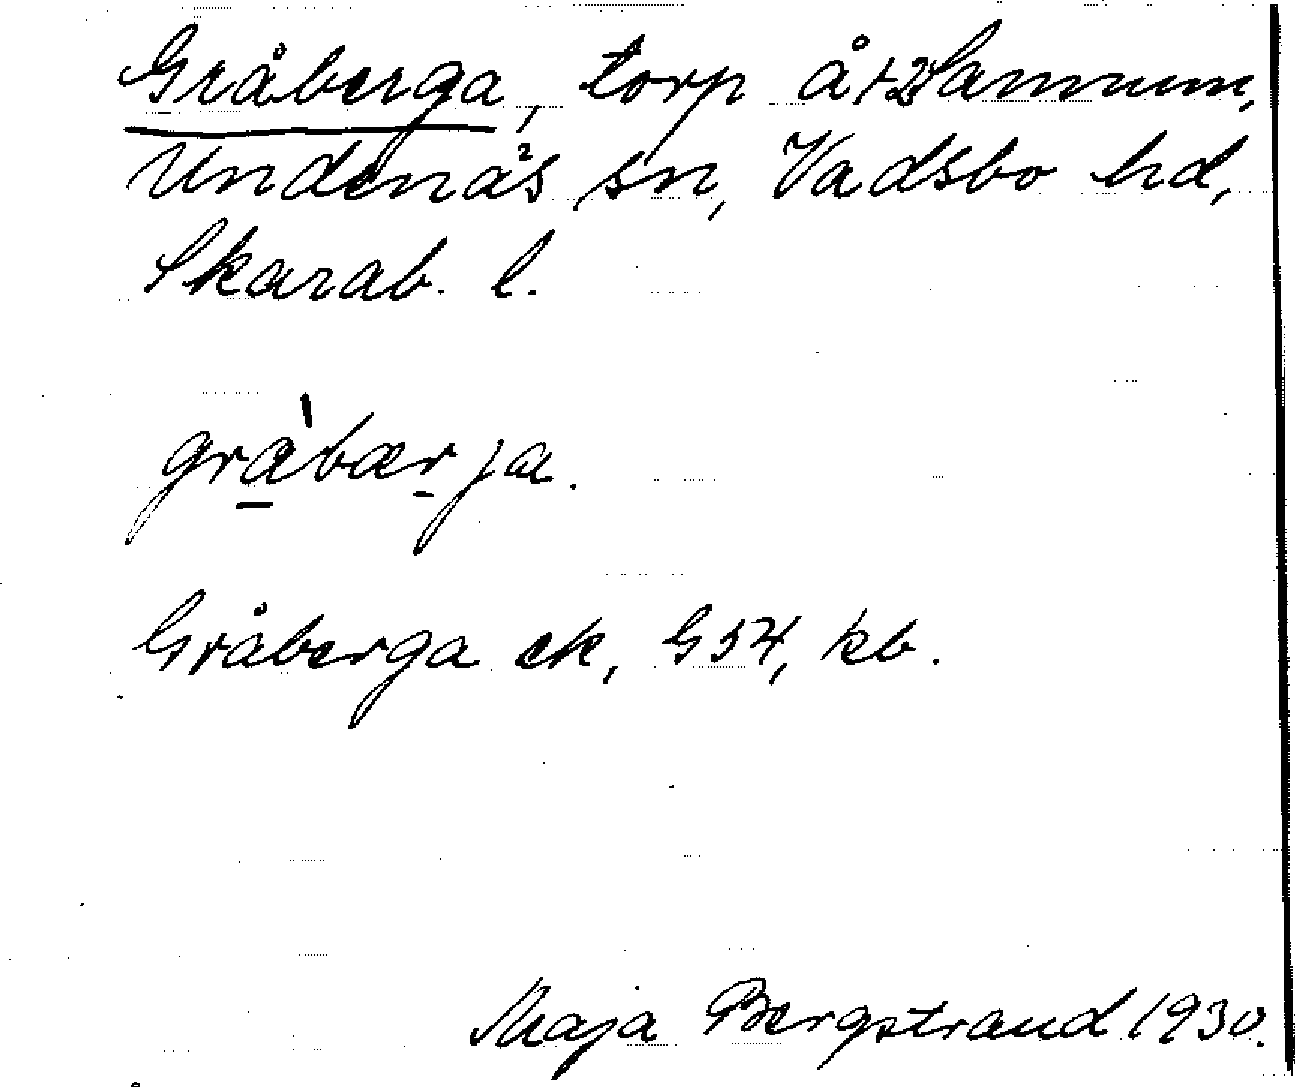 Gråberga, torp å 1+2 Sannum,
Undenäs sn, Vadsbo hd,
Skarab. l.
grȧbærja.
Gråberga ek, G54, kb.
Maja Bergstrand 1930.